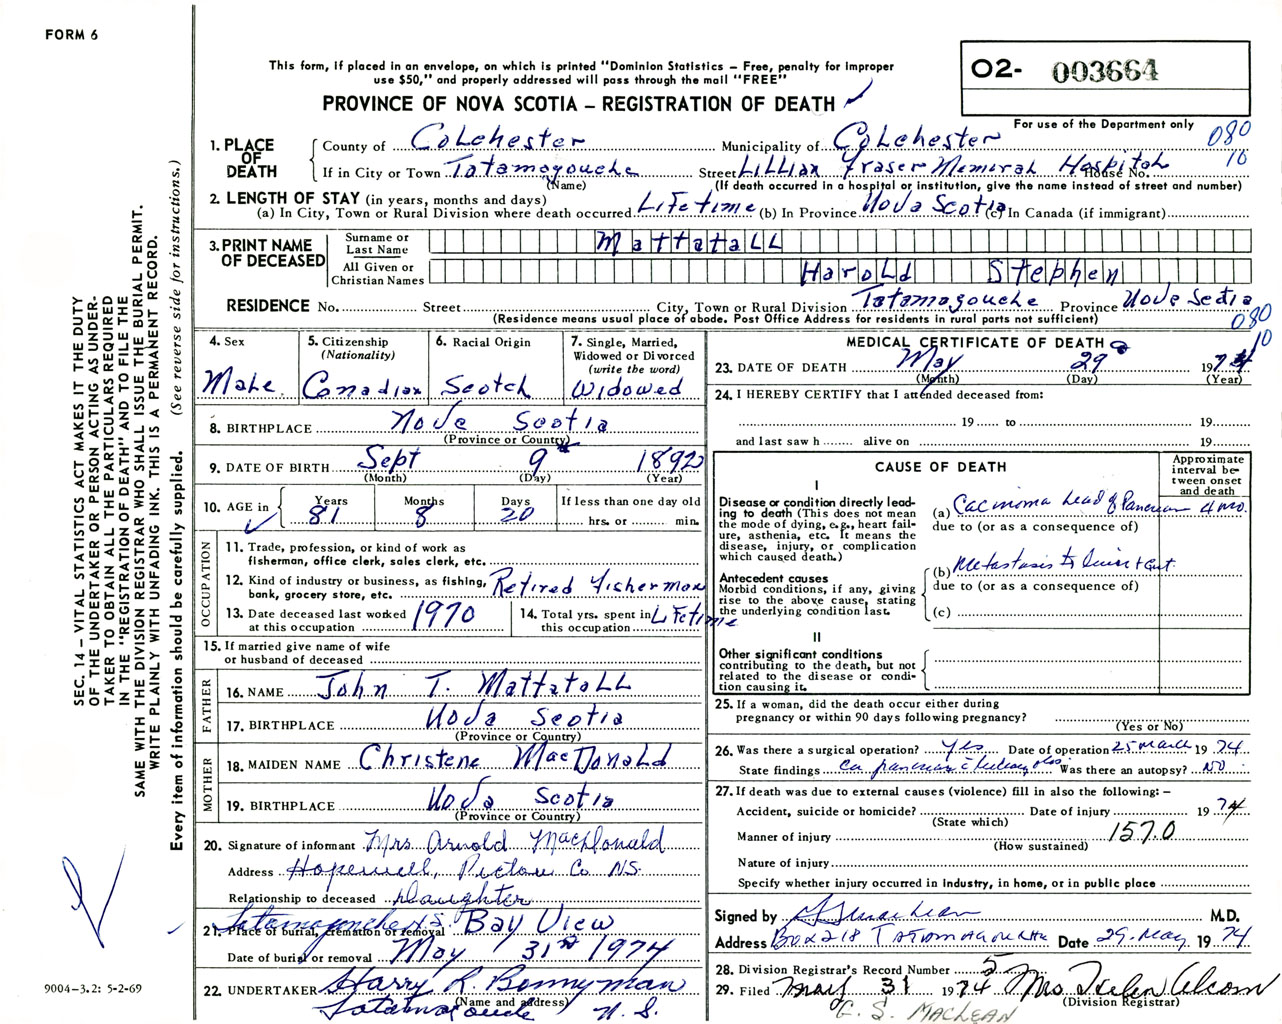 FORM 6
This form, if placed in an envelope, on which is printed "Dominion Statistics – Free, penalty for improper
use $50," and properly addressed will pass through the mail "FREE"
PROVINCE OF NOVA SCOTIA – REGISTRATION OF DEATH
O2- 003664
For use of the Department only
080
10
1. PLACE OF DEATH
County of Colchester Municipality of Colchester
If in City or Town Tatamagouche Street Lillian Fraser Memorial Hospital House No.
(Name) (If death occurred in a hospital or institution, give the name instead of street and number)
2. LENGTH OF STAY (in years, months and days)
(a) In City, Town or Rural Division where death occurred Lifetime (b) In Province Nova Scotia (c) In Canada (if immigrant)
3. PRINT NAME OF DECEASED
Surname or Last Name Mattatall
All Given or Christian Names Harold Stephen
RESIDENCE No. Street City, Town or Rural Division Tatamagouche Province Nova Scotia
(Residence means usual place of abode. Post Office Address for residents in rural parts not sufficient)
080
10
SEC. 14 – VITAL STATISTICS ACT MAKES IT THE DUTY
OF THE UNDERTAKER OR PERSON ACTING AS UNDER-
TAKER TO OBTAIN ALL THE PARTICULARS REQUIRED
IN THE "REGISTRATION OF DEATH" AND TO FILE THE
SAME WITH THE DIVISION REGISTRAR WHO SHALL ISSUE THE BURIAL PERMIT.
WRITE PLAINLY WITH UNFADING INK. THIS IS A PERMANENT RECORD.
Every item of information should be carefully supplied. (See reverse side for instructions.)
4. Sex
Male
5. Citizenship
(Nationality)
Canadian
6. Racial Origin
Scotch
7. Single, Married,
Widowed or Divorced
(write the word)
Widowed
8. BIRTHPLACE Nova Scotia
(Province or Country)
9. DATE OF BIRTH Sept 9 1892
(Month) (Day) (Year)
10. AGE in Years Months Days If less than one day old
81 8 20 hrs. or min.
OCCUPATION
11. Trade, profession, or kind of work as
fisherman, office clerk, sales clerk, etc.
12. Kind of industry or business, as fishing,
bank, grocery store, etc. Retired Fisherman
13. Date deceased last worked
at this occupation 1970
14. Total yrs. spent in
this occupation Lifetime
15. If married give name of wife
or husband of deceased
FATHER
16. NAME John T. Mattatall
17. BIRTHPLACE Nova Scotia
(Province or Country)
MOTHER
18. MAIDEN NAME Christene MacDonald
19. BIRTHPLACE Nova Scotia
(Province or Country)
20. Signature of informant Mrs Arnold MacDonald
Address Hopewell, Pictou Co N.S.
Relationship to deceased Daughter
21. Place of burial, cremation or removal Tatamagouche N.S. Bay View
Date of burial or removal May 31st 1974
22. UNDERTAKER Harry L. Bonnyman
(Name and address)
Tatamagouche N. S.
9004-3.2: 5-2-69
MEDICAL CERTIFICATE OF DEATH
23. DATE OF DEATH May 29 1974
(Month) (Day) (Year)
24. I HEREBY CERTIFY that I attended deceased from:
19 to 19
and last saw h alive on 19
CAUSE OF DEATH
Approximate
interval be-
tween onset
and death
I
Disease or condition directly lead-
ing to death (This does not mean
the mode of dying, e.g., heart fail-
ure, asthenia, etc. It means the
disease, injury, or complication
which caused death.)
(a) Carcinoma head of Pancreas 4 mo.
due to (or as a consequence of)
Antecedent causes
Morbid conditions, if any, giving
rise to the above cause, stating
the underlying condition last.
(b) Metastasis to Liver + Gut
due to (or as a consequence of)
(c)
II
Other significant conditions
contributing to the death, but not
related to the disease or condi-
tion causing it.
25. If a woman, did the death occur either during
pregnancy or within 90 days following pregnancy?
(Yes or No)
26. Was there a surgical operation? Yes Date of operation 25 March 19 74
State findings Ca pancreas Was there an autopsy? NO
27. If death was due to external causes (violence) fill in also the following: –
Accident, suicide or homicide? Date of injury 19 74
(State which)
Manner of injury 157.0
(How sustained)
Nature of injury
Specify whether injury occurred in Industry, in home, or in public place
Signed by G S MacLean M.D.
Address Box 218 Tatamagouche Date 29 May 19 74
28. Division Registrar's Record Number 5
29. Filed May 31 1974 Mrs Helen Alcorn
(Division Registrar)
G. S. MACLEAN